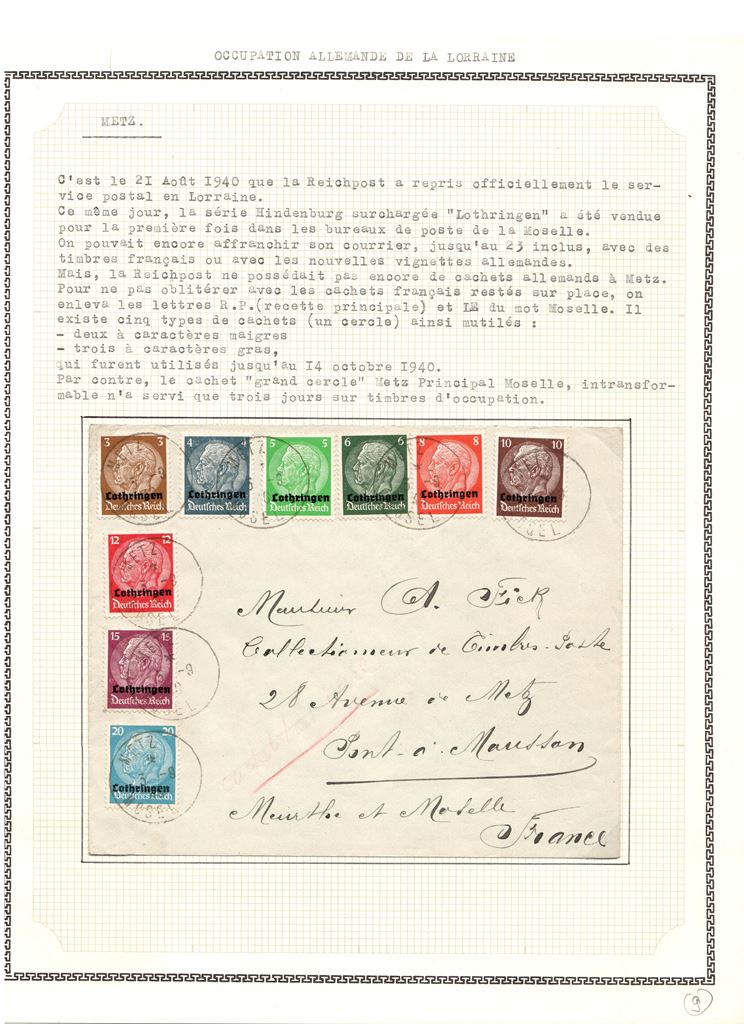 OCCUPATION ALLEMANDE DE LA LORRAINE
METZ.
C'est le 21 Août 1940 que la Reichpost a repris officiellement le ser-
vice postal en Lorraine.
Ce même jour, la série Hindenburg surchargée "Lothringen" a été vendue
pour la première fois dans les bureaux de poste de la Moselle.
On pouvait encore affranchir son courrier, jusqu'au 23 inclus, avec des
timbres français ou avec les nouvelles vignettes allemandes.
Mais, la Reichpost ne possédait pas encore de cachets allemands à Metz.
Pour ne pas oblitérer avec les cachets français restés sur place, on
enleva les lettres R.P.(recette principale) et LE du mot Moselle. Il
existe cinq types de cachets (un cercle) ainsi mutilés :
- deux à caractères maigres
- trois à caractères gras,
qui furent utilisés jusqu'au 14 octobre 1940.
Par contre, le cachet "grand cercle" Metz Principal Moselle, intransfor-
mable n'a servi que trois jours sur timbres d'occupation.
3 3 4 4 5 5 6 6 8 8 10 10
Lothringen Lothringen Lothringen Lothringen Lothringen Lothringen
Deutsches Reich Deutsches Reich Deutsches Reich Deutsches Reich Deutsches Reich Deutsches Reich
12 12
METZ
Lothringen
Deutsches Reich
15 15
Lothringen
Deutsches Reich
20 20
METZ
Lothringen
Deutsches Reich
MOSEL
Monsieur A. Fick
Collectionneur de Timbres-Poste
28 Avenue de Metz
Pont-à-Mousson
Meurthe et Moselle
France
9